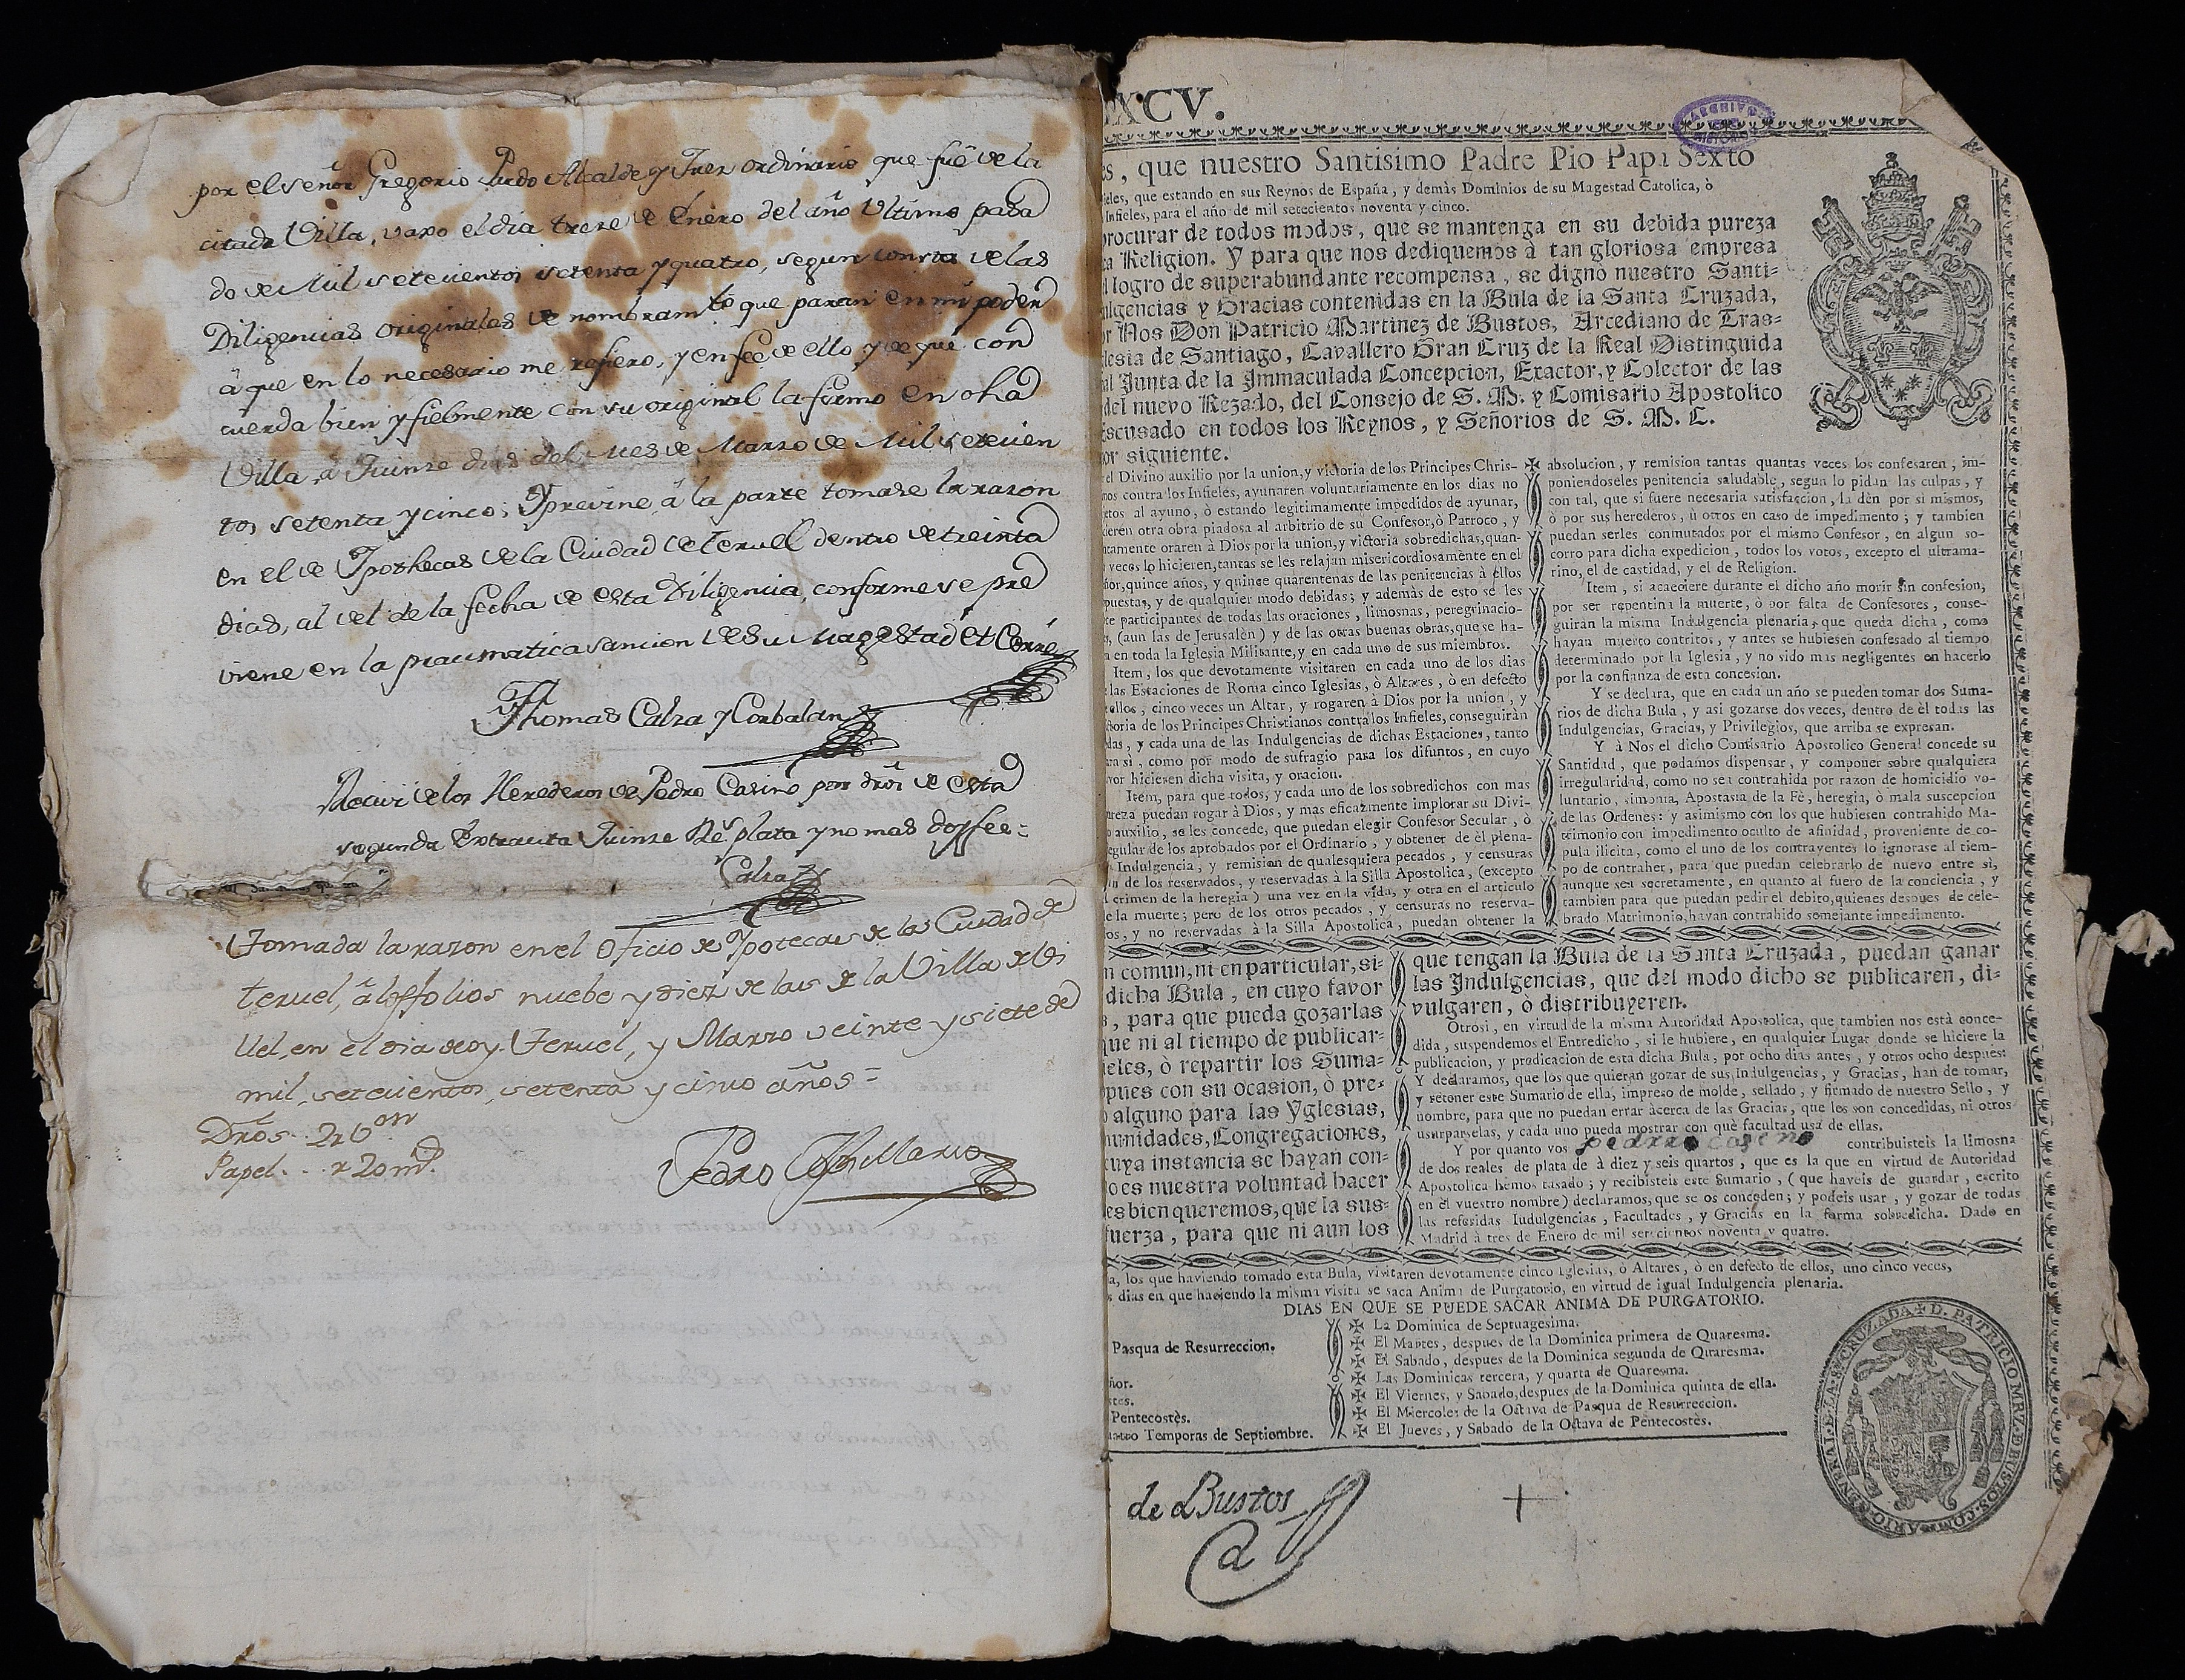 por el señor Gregorio Pardo Alcalde y Juez ordinario que fué de la
citada Villa, vaxo el dia treze de Enero del año ultimo pasa
do de Mil setecientos setenta y quatro, segun consta de las
Diligencias originales de nombramto que paran en mi poder
á que en lo necesario me refiero, y en fee de ello y de que con
cuerda bien y fielmente con su original la firmo en dha
Villa, á Quinze dias del mes de Marzo de Mil setecien
tos setenta y cinco; Y previne á la parte tomase la razon
en el de Ypothecas de la Ciudad de Teruel dentro de treinta
dias, al del de la fecha de esta Diligencia, conforme se pre
viene en la pracmatica sancion de Su Magestad
Thomas Calza y Corbalan
Recivi de los Herederos de Pedro Casino por dros de esta
segunda Extracta Quinze Rs plata y no mas doy fee=
Calza
Tomada la razon en el Oficio de Ypotecas de la Ciudad de
Teruel, á los folios nuebe y diez de las de la Villa de Vi
llel, en el dia de oy. Teruel, y Marzo veinte y siete de
mil, setecientos, setenta y cinco años=
Dros.
Papel.
Pedro
XCV.
es, que nuestro Santisimo Padre Pio Papa Sexto
ieles, que estando en sus Reynos de España, y demàs Dominios de su Magestad Catolica, ò
Infieles, para el año de mil setecientos noventa y cinco.
procurar de todos modos, que se mantenga en su debida pureza
ta Religion. Y para que nos dediquemos à tan gloriosa empresa
l logro de superabundante recompensa, se dignò nuestro Santi-
ulgencias y Gracias contenidas en la Bula de la Santa Cruzada,
or Nos Don Patricio Martinez de Bustos, Arcediano de Tras-
lesia de Santiago, Cavallero Gran Cruz de la Real Distinguida
al Junta de la Immaculada Concepcion, Exactor, y Colector de las
del nuevo Rezado, del Consejo de S. M. y Comisario Apostolico
Escusado en todos los Reynos, y Señorios de S. M. C.
or siguiente.
el Divino auxilio por la union, y victoria de los Principes Chris-
nos contra los Infieles, ayunaren voluntariamente en los dias no
etos al ayuno, ò estando legitimamente impedidos de ayunar,
ieren otra obra piadosa al arbitrio de su Confesor, ò Parroco, y
ntamente oraren à Dios por la union, y victoria sobredichas, quan-
veces lo hicieren, tantas se les relajan misericordiosamente en el
ñor, quince años, y quince quarentenas de las penitencias à ellos
puestas, y de qualquier modo debidas; y ademàs de esto se les
te participantes de todas las oraciones, limosnas, peregrinacio-
s, (aun las de Jerusalèn) y de las otras buenas obras, que se ha-
n en toda la Iglesia Militante, y en cada uno de sus miembros.
Item, los que devotamente visitaren en cada uno de los dias
las Estaciones de Roma cinco Iglesias, ò Altares, ò en defecto
ellos, cinco veces un Altar, y rogaren à Dios por la union, y
ctoria de los Principes Christianos contra los Infieles, conseguiràn
das, y cada una de las Indulgencias de dichas Estaciones, tanto
ra sì, como por modo de sufragio para los difuntos, en cuyo
vor hiciesen dicha visita, y oracion.
Item, para que todos, y cada uno de los sobredichos con mas
ureza puedan rogar à Dios, y mas eficazmente implorar su Divi-
o auxilio, se les concede, que puedan elegir Confesor Secular, ò
egular de los aprobados por el Ordinario, y obtener de èl plena-
Indulgencia, y remision de qualesquiera pecados, y censuras
n de los reservados, y reservadas à la Silla Apostolica, (excepto
l crimen de la heregia) una vez en la vida, y otra en el articulo
e la muerte; pero de los otros pecados, y censuras no reserva-
os, y no reservadas à la Silla Apostolica, puedan obtener la
absolucion, y remision tantas quantas veces los confesaren, im-
poniendoseles penitencia saludable, segun lo pidan las culpas, y
con tal, que si fuere necesaria satisfaccion, la dèn por sì mismos,
ò por sus herederos, ù otros en caso de impedimento; y tambien
puedan serles conmutados por el mismo Confesor, en algun so-
corro para dicha expedicion, todos los votos, excepto el ultrama-
rino, el de castidad, y el de Religion.
Item, si acaeciere durante el dicho año morir sin confesion,
por ser repentina la muerte, ò por falta de Confesores, conse-
guiràn la misma Indulgencia plenaria, que queda dicha, como
hayan muerto contritos, y antes se hubiesen confesado al tiempo
determinado por la Iglesia, y no sido mas negligentes en hacerlo
por la confianza de esta concesion.
Y se declara, que en cada un año se pueden tomar dos Suma-
rios de dicha Bula, y asi gozarse dos veces, dentro de èl todas las
Indulgencias, Gracias, y Privilegios, que arriba se expresan.
Y à Nos el dicho Comisario Apostolico General concede su
Santidad, que podamos dispensar, y componer sobre qualquiera
irregularidad, como no sea contrahida por razon de homicidio vo-
luntario, simonia, Apostasia de la Fè, heregia, ò mala suscepcion
de las Ordenes: y asimismo con los que hubiesen contrahido Ma-
trimonio con impedimento oculto de afinidad, proveniente de co-
pula ilicita, como el uno de los contraventes lo ignorase al tiem-
po de contraher, para que puedan celebrarlo de nuevo entre sì,
aunque sea secretamente, en quanto al fuero de la conciencia, y
tambien para que puedan pedir el debito, quienes despues de cele-
brado Matrimonio, hayan contrahido semejante impedimento.
n comun, ni en particular, si-
dicha Bula, en cuyo favor
s, para que pueda gozarlas
que ni al tiempo de publicar-
ieles, ò repartir los Suma-
spues con su ocasion, ò pre-
o alguno para las Yglesias,
munidades, Congregaciones,
cuya instancia se hayan con-
oes nuestra voluntad hacer
es bien queremos, que la sus-
fuerza, para que ni aun los
que tengan la Bula de la Santa Cruzada, puedan ganar
las Indulgencias, que del modo dicho se publicaren, di-
vulgaren, ò distribuyeren.
Otrosi, en virtud de la misma Autoridad Apostolica, que tambien nos està conce-
dida, suspendemos el Entredicho, si le hubiere, en qualquier Lugar donde se hiciere la
publicacion, y predicacion de esta dicha Bula, por ocho dias antes, y otros ocho despues:
Y declaramos, que los que quieran gozar de sus Indulgencias, y Gracias, han de tomar,
y retener este Sumario de ella, impreso de molde, sellado, y firmado de nuestro Sello, y
nombre, para que no puedan errar àcerca de las Gracias, que les son concedidas, ni otros
usurparselas, y cada uno pueda mostrar con què facultad usa de ellas.
Y por quanto vos pedrro caseno contribuisteis la limosna
de dos reales de plata de à diez y seis quartos, que es la que en virtud de Autoridad
Apostolica hemos tasado; y recibisteis este Sumario, (que haveis de guardar, escrito
en èl vuestro nombre) declaramos, que se os conceden; y podeis usar, y gozar de todas
las referidas Iudulgencias, Facultades, y Gracias en la forma sobredicha. Dado en
Madrid à tres de Enero de mil setecientos noventa y quatro.
a, los que haviendo tomado esta Bula, visitaren devotamente cinco Iglesias, ò Altares, ò en defecto de ellos, uno cinco veces,
s dias en que haciendo la misma visita se saca Anima de Purgatorio, en virtud de igual Indulgencia plenaria.
DIAS EN QUE SE PUEDE SACAR ANIMA DE PURGATORIO.
Pasqua de Resurreccion.
ñor.
tes.
Pentecostès.
uatro Temporas de Septiembre.
La Dominica de Septuagesima.
El Martes, despues de la Dominica primera de Quaresma.
El Sabado, despues de la Dominica segunda de Quaresma.
Las Dominicas tercera, y quarta de Quaresma.
El Viernes, y Sabado, despues de la Dominica quinta de ella.
El Miercoles de la Octava de Pasqua de Resurreccion.
El Jueves, y Sabado de la Octava de Pentecostès.
D. PATRICIO MRZ. DE BUSTOS. COMISARIO. GENERAL. DE. LA. S. CRUZADA
de Bustos